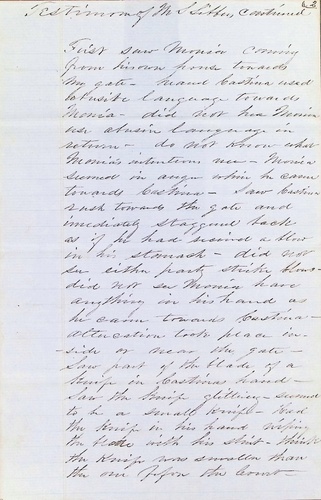 Testimony of M S Tibbey, continued
2
First saw Monica coming
from Brown house towards
my gate - heard Castina used
abusive language towards
Monica - did not hear Monica
use abusive language in
return - do not know what
Monica's intentions were - Monica
seemed in anger when he came
towards Castina - Saw Castina
rush towards the gate and
imediately staggered back
as if he had received a blow
in his stomach - did not
see either party strike blows -
did not see Monica have
anything in his hand as
he came towards Castina -
altercation took place in-
side or near the gate -
Saw part of the blade of a
Knife in Castinas hand -
Saw the knife glittering - seemed
to be a small knife - Had
the knife in his hand wiping
the blade with his shirt - think
the Knife was smaller than
the one before the Court -